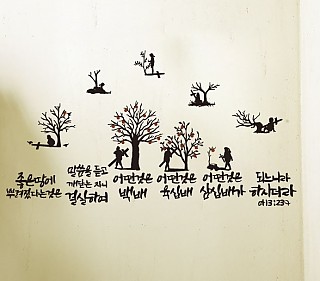 좋은땅에
뿌려졌다는것은
말씀을 듣고
깨닫는 자니
결실하여
어떤것은
백배
어떤것은
육십배
어떤것은
삼십배가
되느니라
하시더라
마13:23